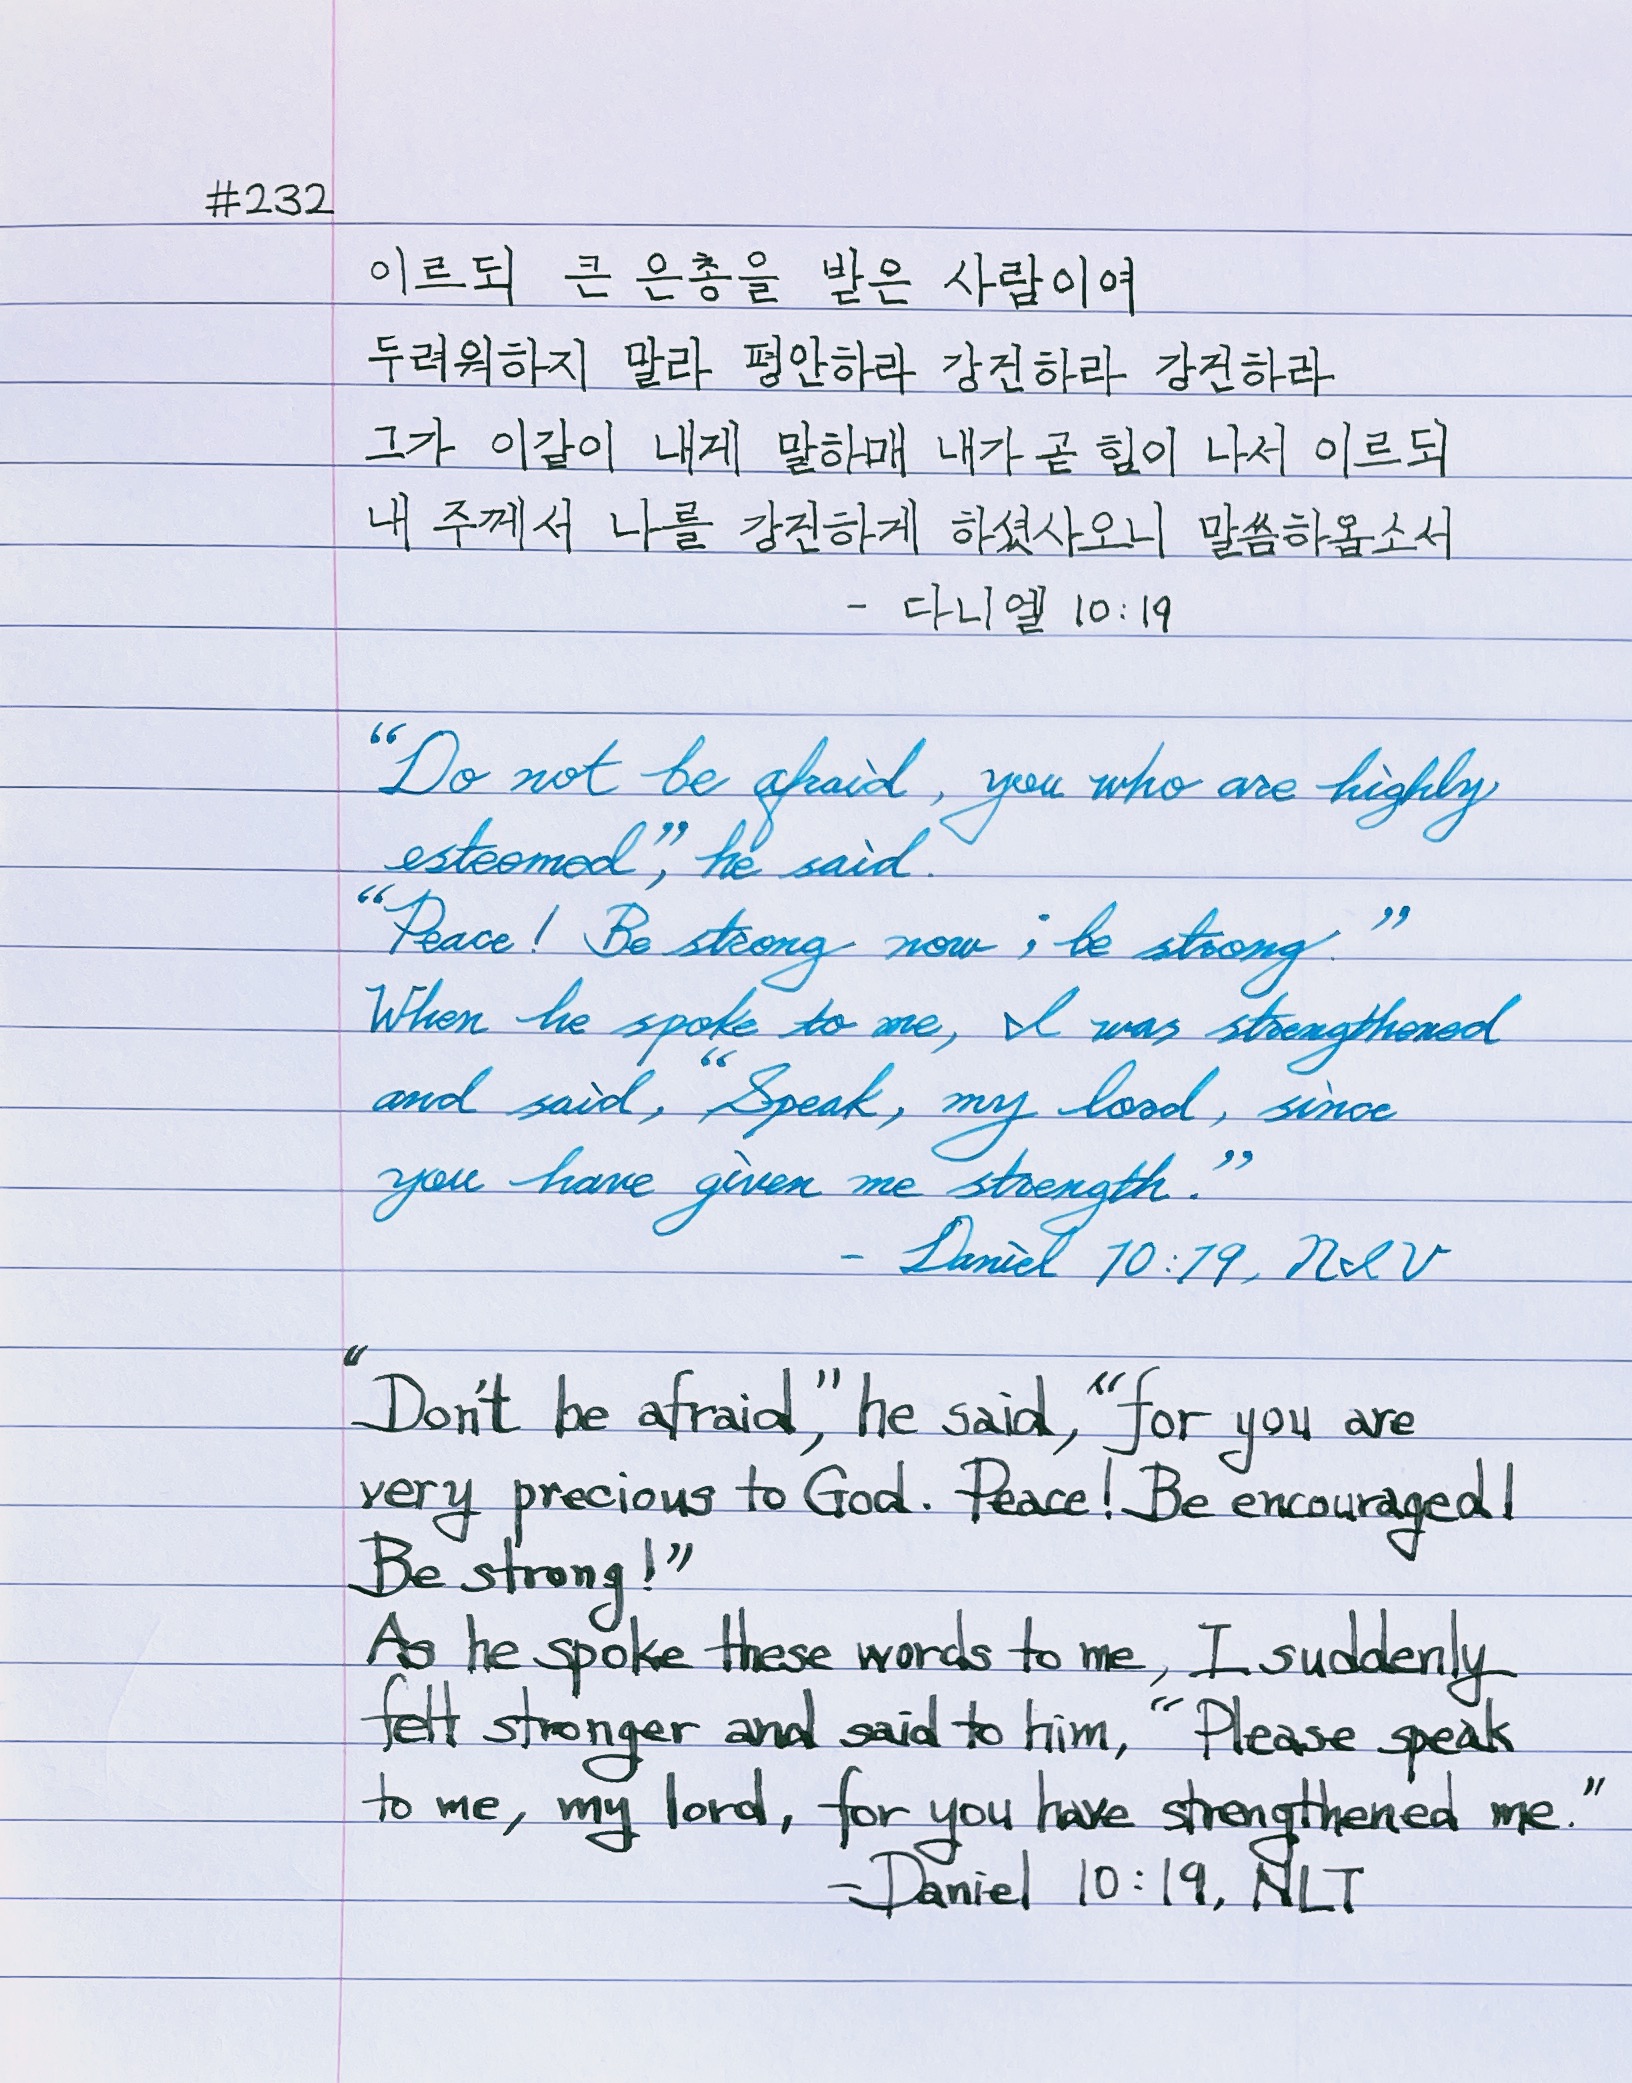 #232
이르되 큰 은총을 받은 사람이여
두려워하지 말라 평안하라 강건하라 강건하라
그가 이같이 내게 말하매 내가 곧 힘이 나서 이르되
내 주께서 나를 강건하게 하셨사오니 말씀하옵소서
- 다니엘 10:19
“Do not be afraid, you who are highly
esteemed”, he said.
“Peace! Be strong now; be strong.”
When he spoke to me, I was strengthened
and said, “Speak, my lord, since
you have given me strength.”
- Daniel 10:19, NIV
“Don't be afraid,” he said, “for you are
very precious to God. Peace! Be encouraged!
Be strong!”
As he spoke these words to me, I suddenly
felt stronger and said to him, “Please speak
to me, my lord, for you have strengthened me.”
- Daniel 10:19, NLT